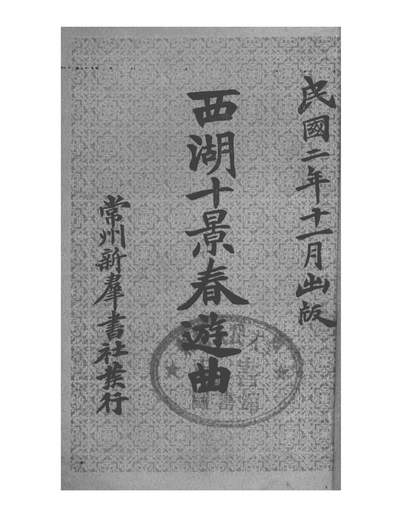 民國二年十一月出版
西湖十景春遊曲
常州新羣書社發行